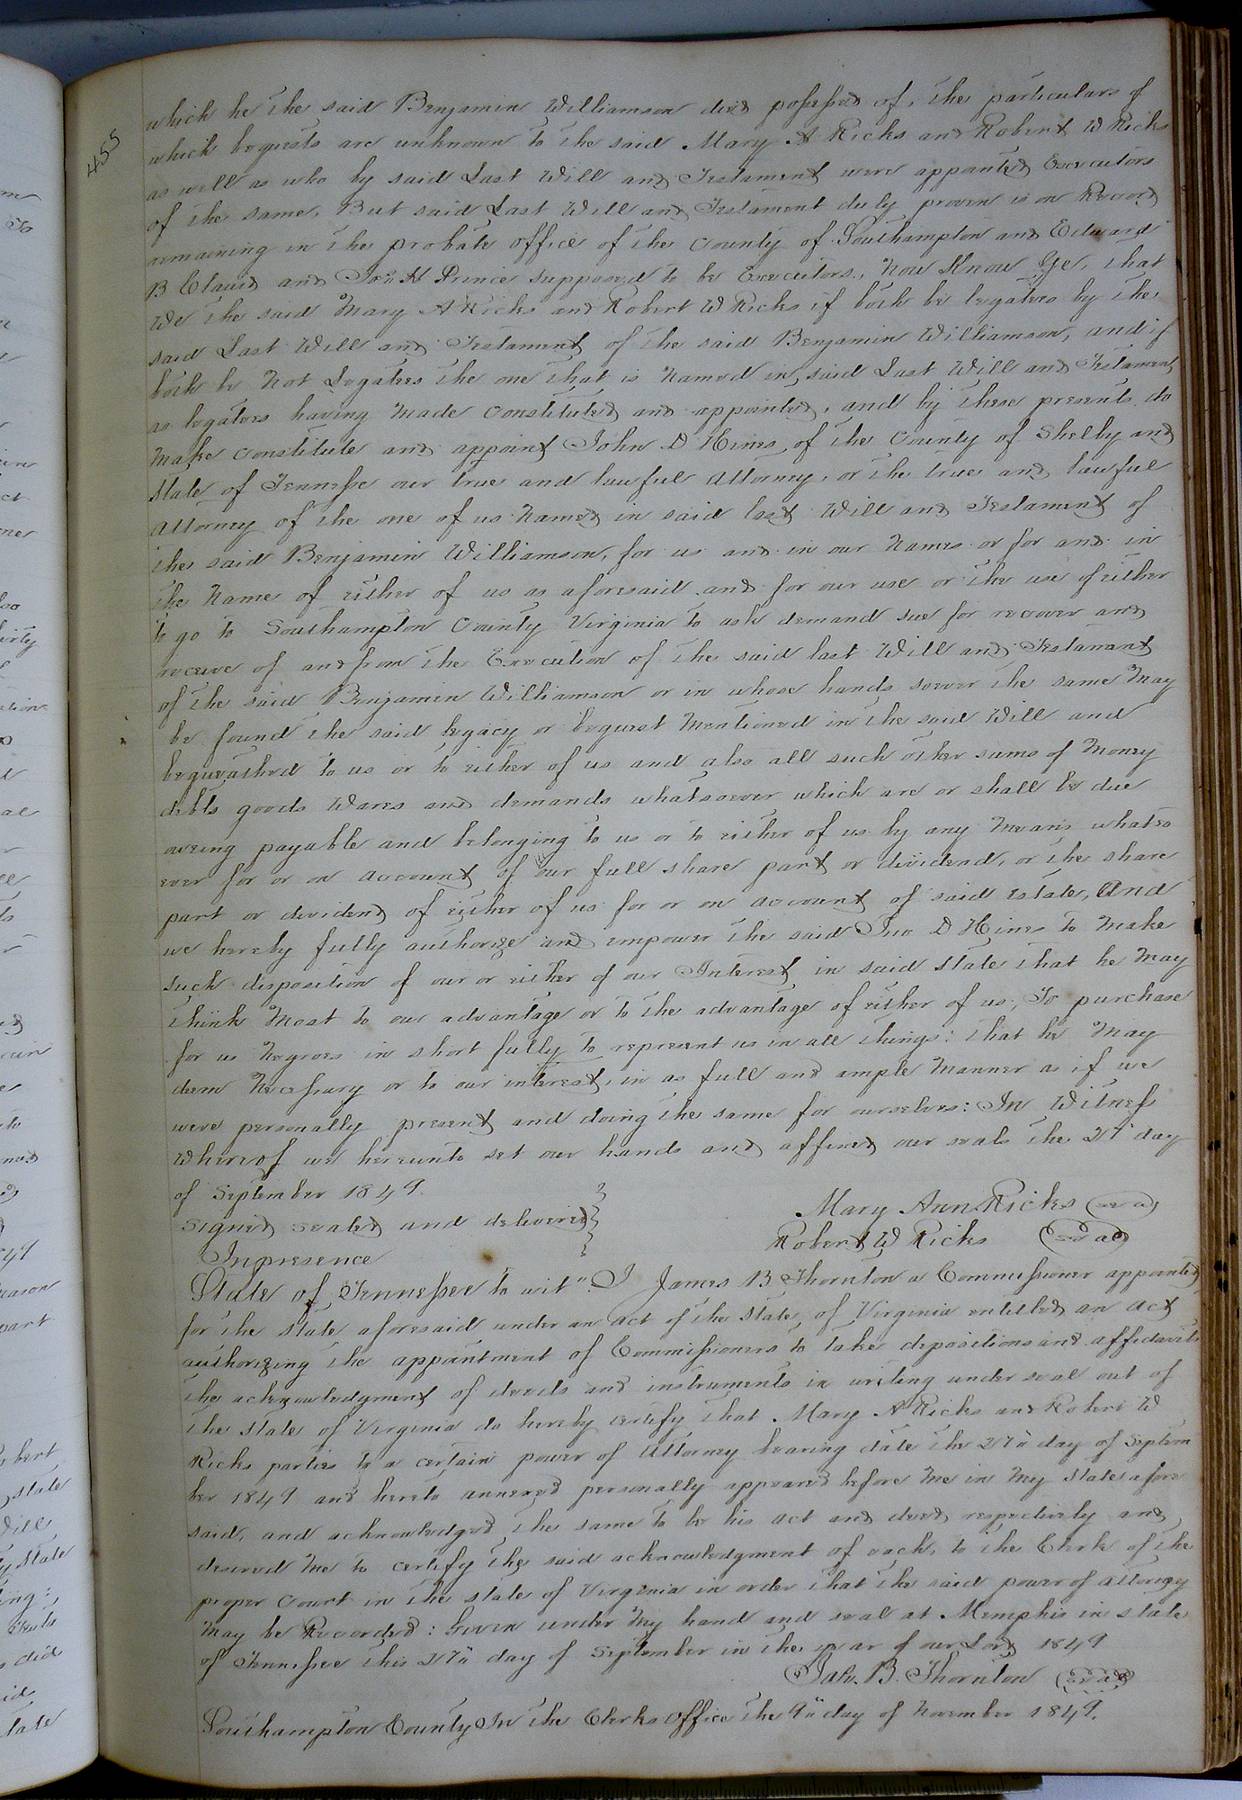 455
which he the said Benjamin Williamson died possessed of, the particulars of
which bequests are unknown to the said Mary A Ricks and Robert W Ricks
as well as who by said Last Will and Testament were appointed Executors
of the same, But said Last Will and Testament duly proven is on Record
remaining in the probate office of the county of Southampton and Edward
B Claud and Jno H Prince supposed to be Executors, Now Know Ye, that
We the said Mary A Ricks and Robert W Ricks if both be legatees by the
said Last Will and Testament of the said Benjamin Williamson, and if
both be Not Legatees the one that is Named in said Last Will and Testament
as legatees having made constituted and appointed, and by these presents do
Make constitute and appoint John D Hines of the County of Shelby and
State of Tennessee our true and lawful Attorney, or the true and lawful
attorney of the one of us Named in said last Will and Testament of
the said Benjamin Williamson, for us and in our Names or for and in
the Name of either of us as aforesaid and for our use or the use of either
to go to Southampton County Virginia to ask demand sue for recover and
receive of and from the Execution of the said last Will and Testament
of the said Benjamin Williamson or in whose hands soever the same May
be found the said legacy or bequest Mentioned in the said Will and
bequeathed to us or to either of us and also all such other sums of Money
debts goods Wares and demands whatsoever which are or shall be due
oweing payable and belonging to us or to either of us by any Means whatso
ever for or on account of our full share part or dividend, or the share
part or devidend of either of us for or on account of said estate, And
we hereby fully authorize and empower the said Jno D Hines to Make
such disposition of our or either of our Interest in said state that he May
think Most to our advantage or to the advantage of either of us; To purchase
for us Negroes in short fully to represent us in all things: that he May
deem Necessary or to our interest, in as full and ample Manner as if we
were personally present and doing the same for ourselves: In Witness
Whereof we hereunto set our hands and affixed our seals the 27 day
of September 1849.
Signed sealed and delivered
Mary Ann Ricks seal
Inpresence
Robert W Ricks seal
State of Tennessee to wit" I James B Thornton a Commissioner appointed
for the state aforesaid under an act of the State of Virginia entitled an act
authorizing the appointment of Commissioners to take depositions and affidavits
the acknowledgment of deeds and instruments in writing under seal out of
the state of Virginia do hereby certify that Mary A Ricks and Robert W
Ricks parties to a certain power of Attorney bearing date the 27" day of Septem
ber 1849 and hereto annexed personally appeared before Me in My State afore
said, and acknowledged the same to be his act and deed respectively and
desired Me to certify the said acknowledgment of each, to the Clerk of the
proper court in the state of Virginia in order that the said power of attorney
May be Recorded: Given under My hand and seal at Memphis in state
of Tennessee this 27" day of September in the year of our Lord 1849
Jas. B. Thornton seal
Southampton County In the Clerks Office the 9" day of November 1849.